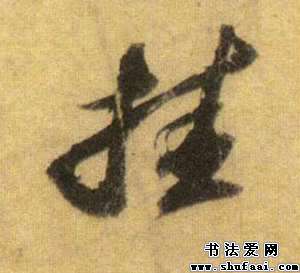 挂
书法爱网
www.shufaai.com